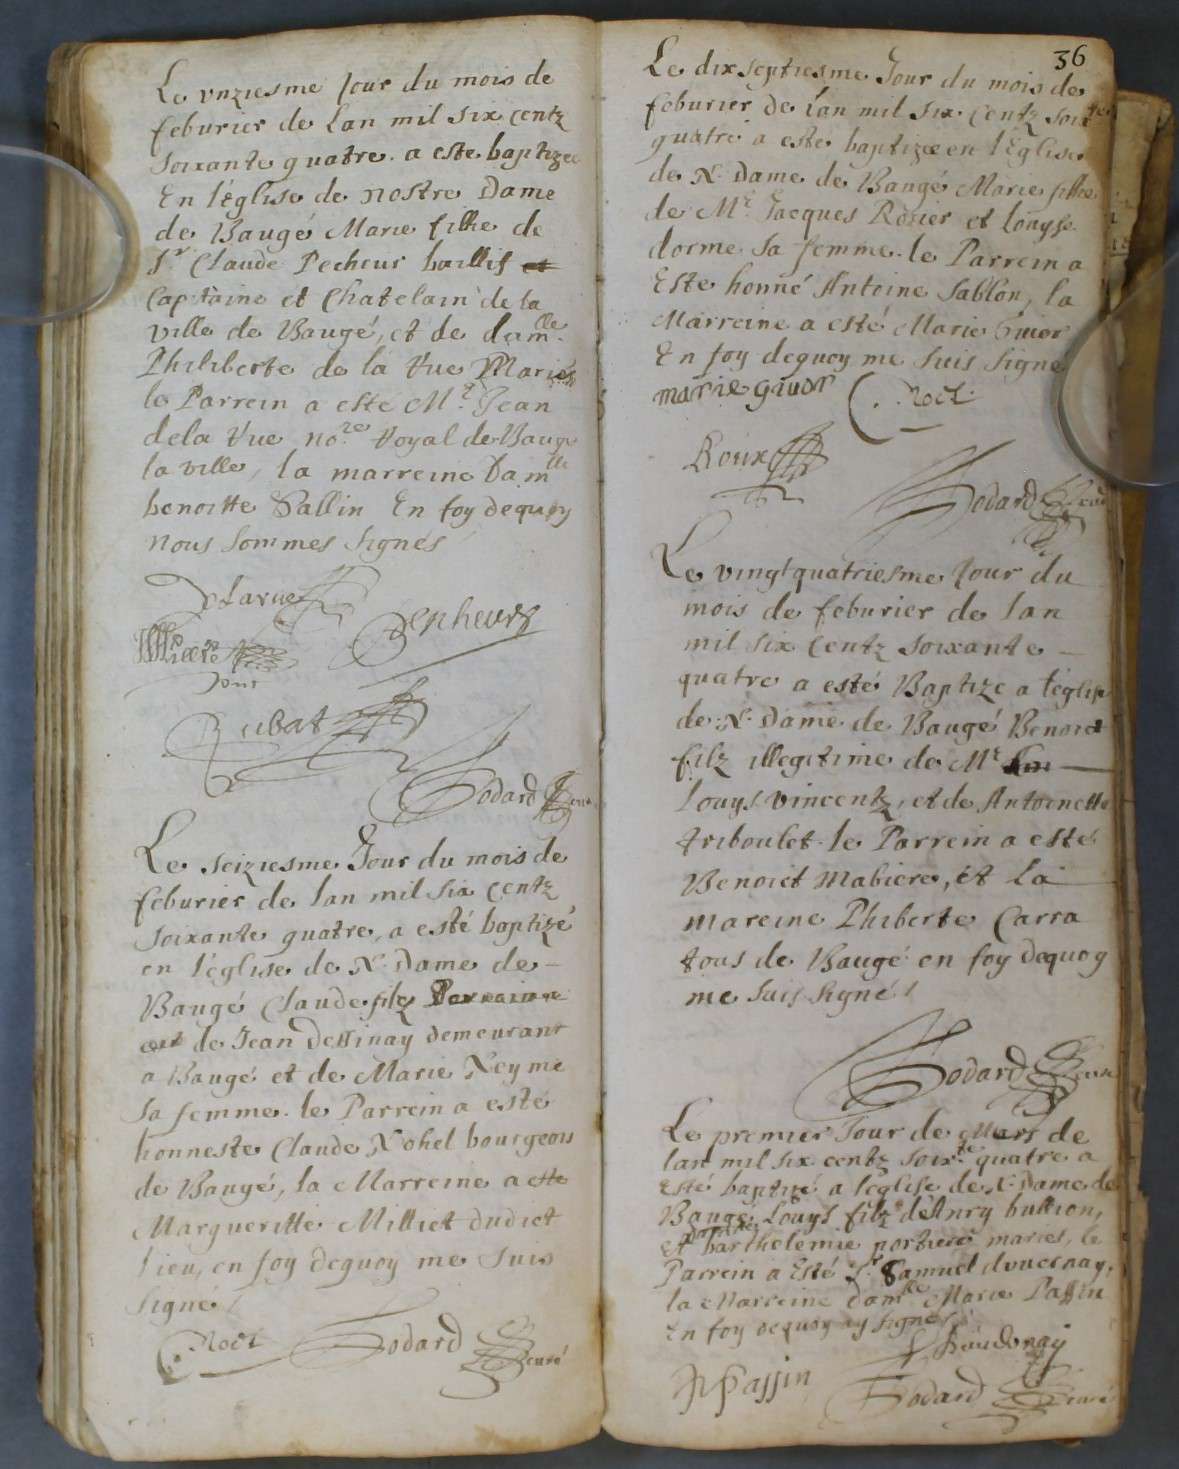 Le unziesme Jour du mois de
feburier de Lan mil six centz
soixante quatre. a este baptizee
En l'église de nostre Dame
de Baugé Marie fille de
Sr Claude Pecheur baillif et
Capitaine et Chatelain de la
ville de Baugé, et de damlle
Philiberte de la Rue Mariés
le Parrein a esté Mre Jean
dela Rue nore Royal de Baugé
la ville, la marreine Damlle
benoitte Sallin En foy dequoy
nous sommes signés
Delarue
Pepheurs
Cubat
Godard curé
Le seiziesme Jour du mois de
feburier de lan mil six centz
soixante quatre, a esté baptizé
en l'église de N. Dame de
Baugé Claude filz
de Jean Dessinay demeurant
a Baugé et de Marie Neyme
sa femme. le Parrein a esté
honneste Claude Nohel bourgeois
de Baugé, la Marreine a este
Margueritte Milliet dudict
lieu, en foy dequoy me suis
signé
Noel Godard curé
36
Le dix septiesme Jour du mois de
feburier de lan mil six centz soixte
quatre a esté baptizee en l'Eglise
de N. Dame de Baugé Marie fille
de Mre Jacques Rosier et Louyse
dorme sa femme. le Parrein a
Este honné Antoine Sablon, la
Marreine a esté Marie Guior
En foy dequoy me suis signé
marie guior Noel
Roux
Godard curé
Le vingt quatriesme Jour du
mois de feburier de lan
mil six centz soixante
quatre a esté Baptizé a l'églisse
de N. Dame de Baugé Benoict
filz illegitime de Mre
Louys vincentz, et de Antoinette
triboulet. le Parrein a esté
Benoict Mabiere, et La
mareine Phiberte Carra
tous de Baugé en foy dequoy
me suis signé
Godard curé
Le premier Jour de Mars de
lan mil six centz soixte quatre a
Esté baptizé a léglise de N. Dame de
Baugé Louys filz d'Anry bullion,
Et Barthelemie portiere mariés, le
Parrein a Esté Sr Samuel duuernay,
la Marreine damlle Marie Passin
En foy dequoy ay signé
Duuernay
M Passin Godard curé